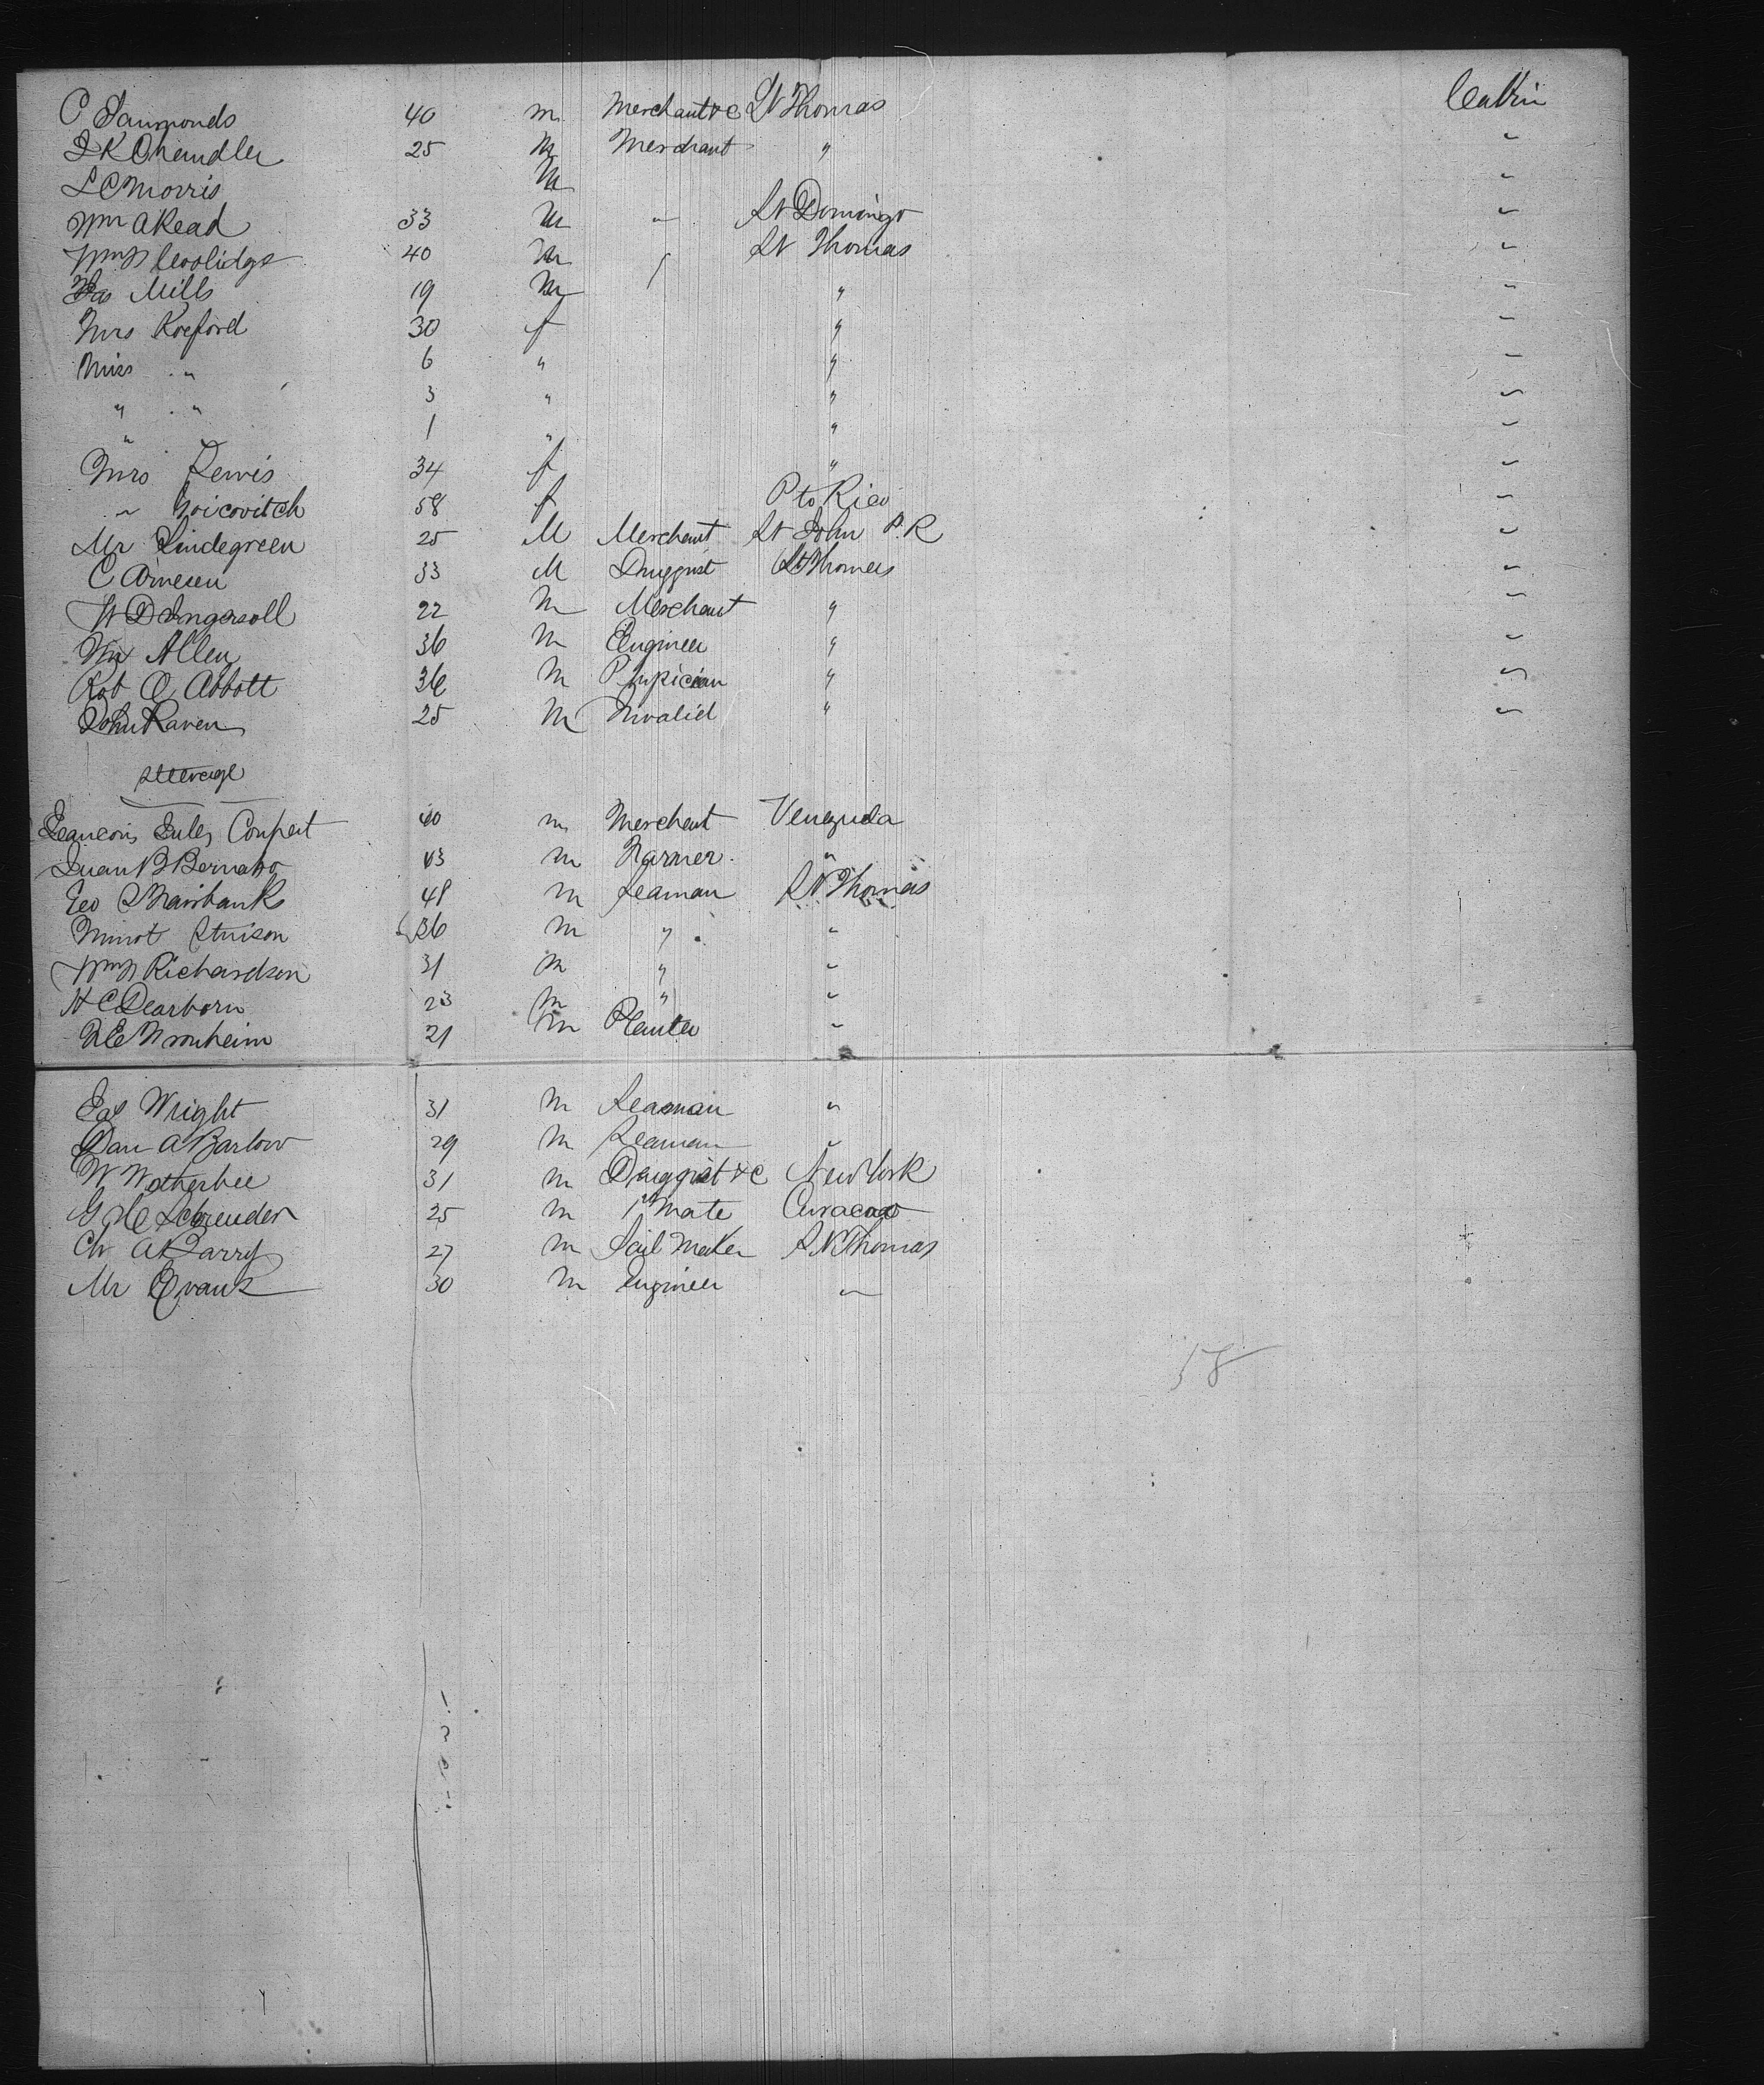 C Sammonds 40 m Merchant &c St Thomas Cabin
J K Chandler 25 m Merchant " "
L C Morris M "
Wm A Read 33 M " St Domingo "
Wm H Coolidge 40 M St Thomas "
Jas Mills 19 M " "
Mrs Koeford 30 f " "
Miss " 6 " " "
" " 3 " " "
" 1 " " "
Mrs Lewis 34 f " "
" Noicovitch 58 f Pto Rico "
Mr Lindegreen 25 M Merchant St John P.R "
C Arnesen 33 M Druggist St Thomas "
W D Ingersoll 22 M Merchant " "
Wm Allen 36 M Engineer " "
Rob O Abbott 36 M Physician " "
John Raven 25 M Invalid " "
Steerage
Jules 40 m Merchant Venezuela
Juan B Bernabo 43 m Farmer "
Geo Fairbanks 48 m Seaman St Thomas
Minot Stuison 36 m " "
Wm H Richardson 31 m " "
H C Dearborn 23 m " "
21 m Planter "
Wright 31 m Seaman "
Dan A Barlow 29 m Seaman "
W Wotherbee 31 m Druggist &c New York
G H Schreuder 25 m 1st Mate Curacao
Ch A Barry 27 m Sail Maker St Thomas
Mr Evans 30 m Engineer "
58